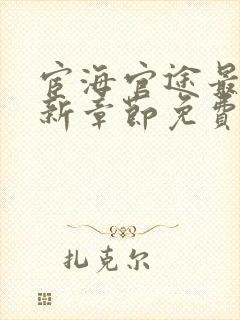 宦海官途最
新章节免费
扎克尔